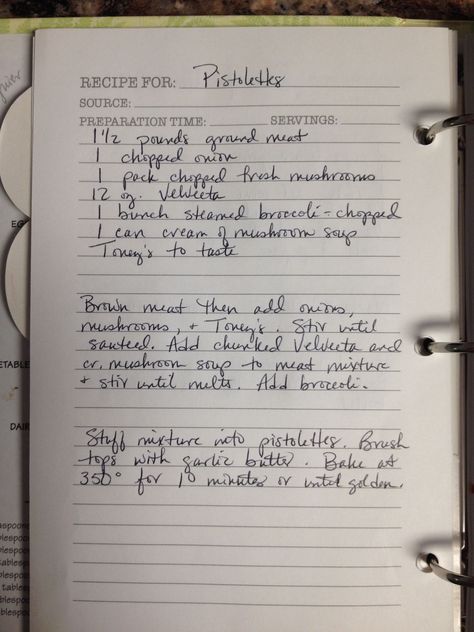 RECIPE FOR: Pistolettes
SOURCE:
PREPARATION TIME: SERVINGS:
1 1/2 pounds ground meat
1 chopped onion
1 pack chopped fresh mushrooms
12 oz. Velveeta
1 bunch steamed broccoli - chopped
1 can cream of mushroom soup
Toney's to taste
Brown meat then add onions,
mushrooms, + Toney's. Stir until
sauteed. Add chunked Velveeta and
cr. mushroom soup to meat mixture
+ stir until melts. Add broccoli.
Stuff mixture into pistolettes. Brush
tops with garlic butter. Bake at
350° for 10 minutes or until golden.
EG
ETABLE
DAIR
aspoons
blespoo
blespoo
tables
blespoo